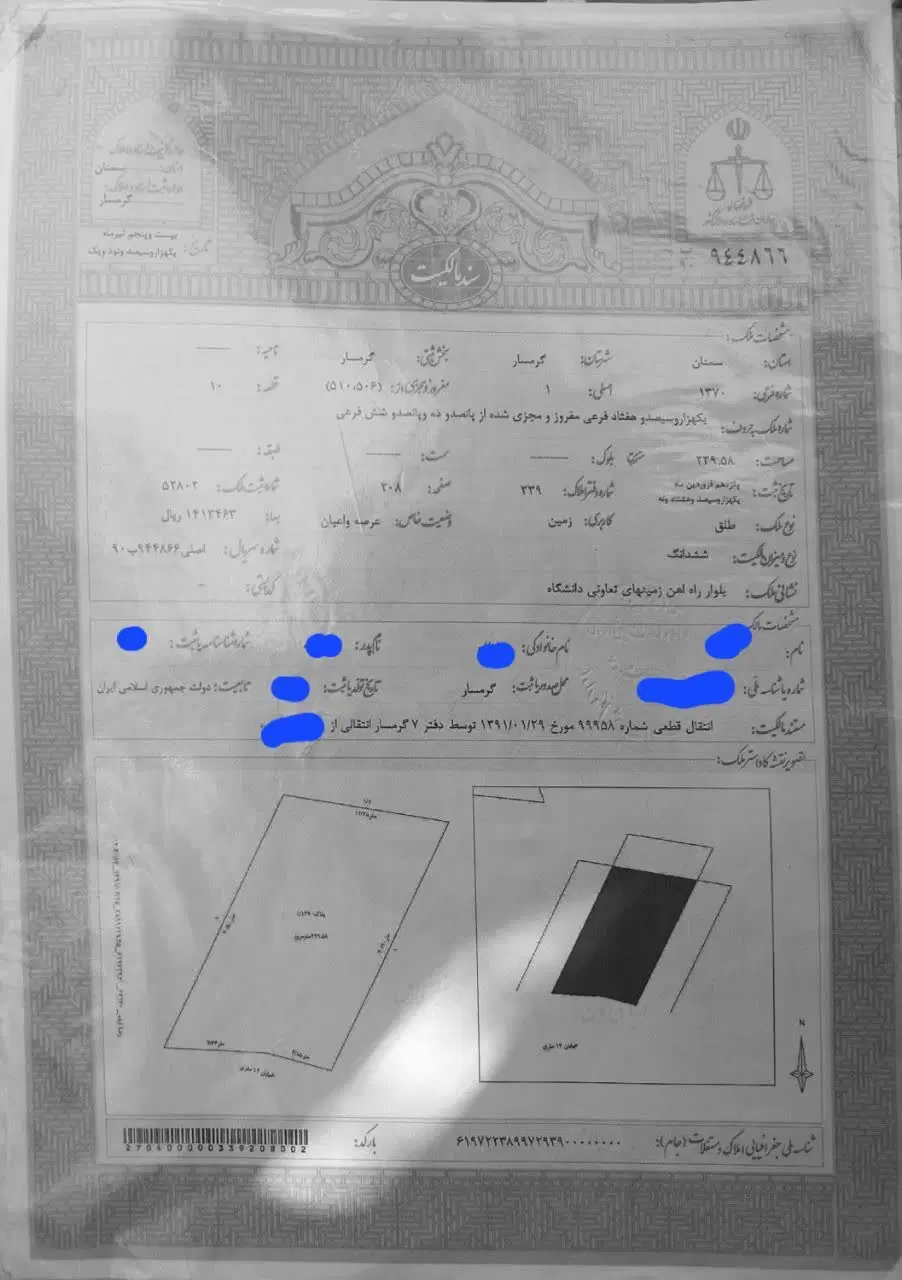 سازمان ثبت اسناد و املاک کشور
استان: سمنان
گرمسار
تاریخ: بیست وپنجم تیرماه
یکهزاروسیصد ونود ویک
۹۴۴۸۶۶ ب ۹۰
سند مالکیت
مشخصات ملک:
استان: سمنان شهرستان: گرمسار بخش ثبتی: گرمسار ناحیه: ——
شماره فرعی: ۱۳۷۰ اصلی: ۱ مفروز و مجزی از: (۵۱۰،۵۰۶) قطعه: ۱۰
شماره ملک به حروف: یکهزاروسیصدو هفتاد فرعی مفروز و مجزی شده از پانصدو ده وپانصدو شش فرعی
مساحت: ۲۳۹.۵۸ بلوک: —— سمت: —— طبقه: ——
تاریخ ثبت: پانزدهم فروردین ماه یکهزاروسیصد وهشتاد ونه شماره دفتر املاک: ۲۳۹ صفحه: ۲۰۸ شماره ثبت ملک: ۵۲۸۰۲
نوع ملک: طلق کاربری: زمین وضعیت خاص: عرصه واعیان بها: ۱۴۱۳۴۶۳ ریال
نوع و میزان مالکیت: ششدانگ شماره سریال: اصلی۹۴۴۸۶۶ب۹۰
نشانی ملک: بلوار راه اهن زمینهای تعاونی دانشگاه کد پستی: –
مشخصات مالک
نام: نام خانوادگی: نام پدر: شماره شناسنامه یا ثبت:
شماره یا شناسه ملی: محل صدور یا ثبت: گرمسار تاریخ تولد یا ثبت: تابعیت: دولت جمهوری اسلامی ایران
مستند مالکیت: انتقال قطعی شماره ۹۹۹۵۸ مورخ ۱۳۹۱/۰۱/۲۹ توسط دفتر ۷ گرمسار انتقالی از
تصویر نقشه کاداستر ملک:
N
خیابان ۱۲ متری
خیابان ۱۲ متری
شناسه ملی جغرافیایی املاک و مستغلات (جام): ۶۱۹۷۲۲۳۸۹۹۷۲۹۳۹۰۰۰۰۰۰۰۰ بارکد:
270400000339208002